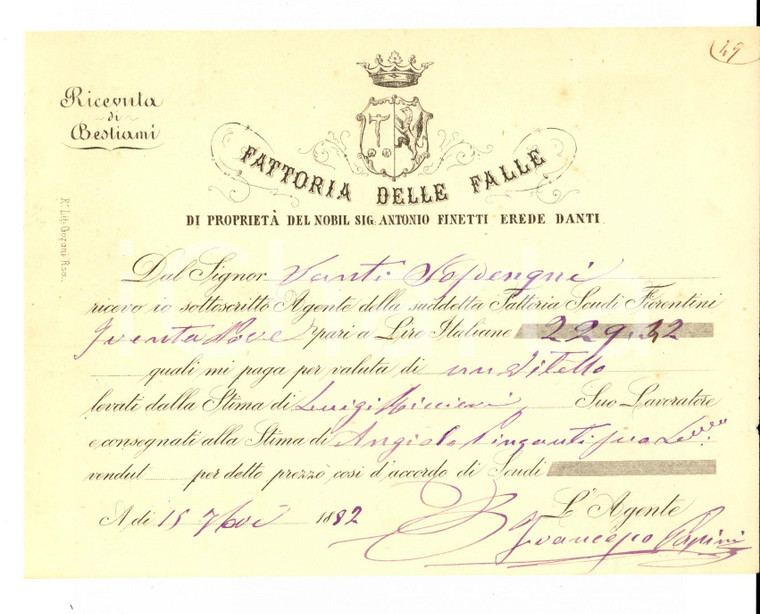 49
Ricevuta
di
Bestiami
FATTORIA DELLE FALLE
DI PROPRIETÀ DEL NOBIL SIG. ANTONIO FINETTI EREDE DANTI
Dal Signor Santi
ricevo io sottoscritto Agente della suddetta Fattoria Scudi Fiorentini
Trenta Nove pari a Lire Italiane 229,32
quali mi paga per valuta di un Vitello
levati dalla Stima di Luigi Suo Lavoratore
e consegnati alla Stima di Angiolo suo
vendut per detto prezzo così d'accordo di Scudi
A dì 15 7bre 1882 L'Agente
Francesco Papini